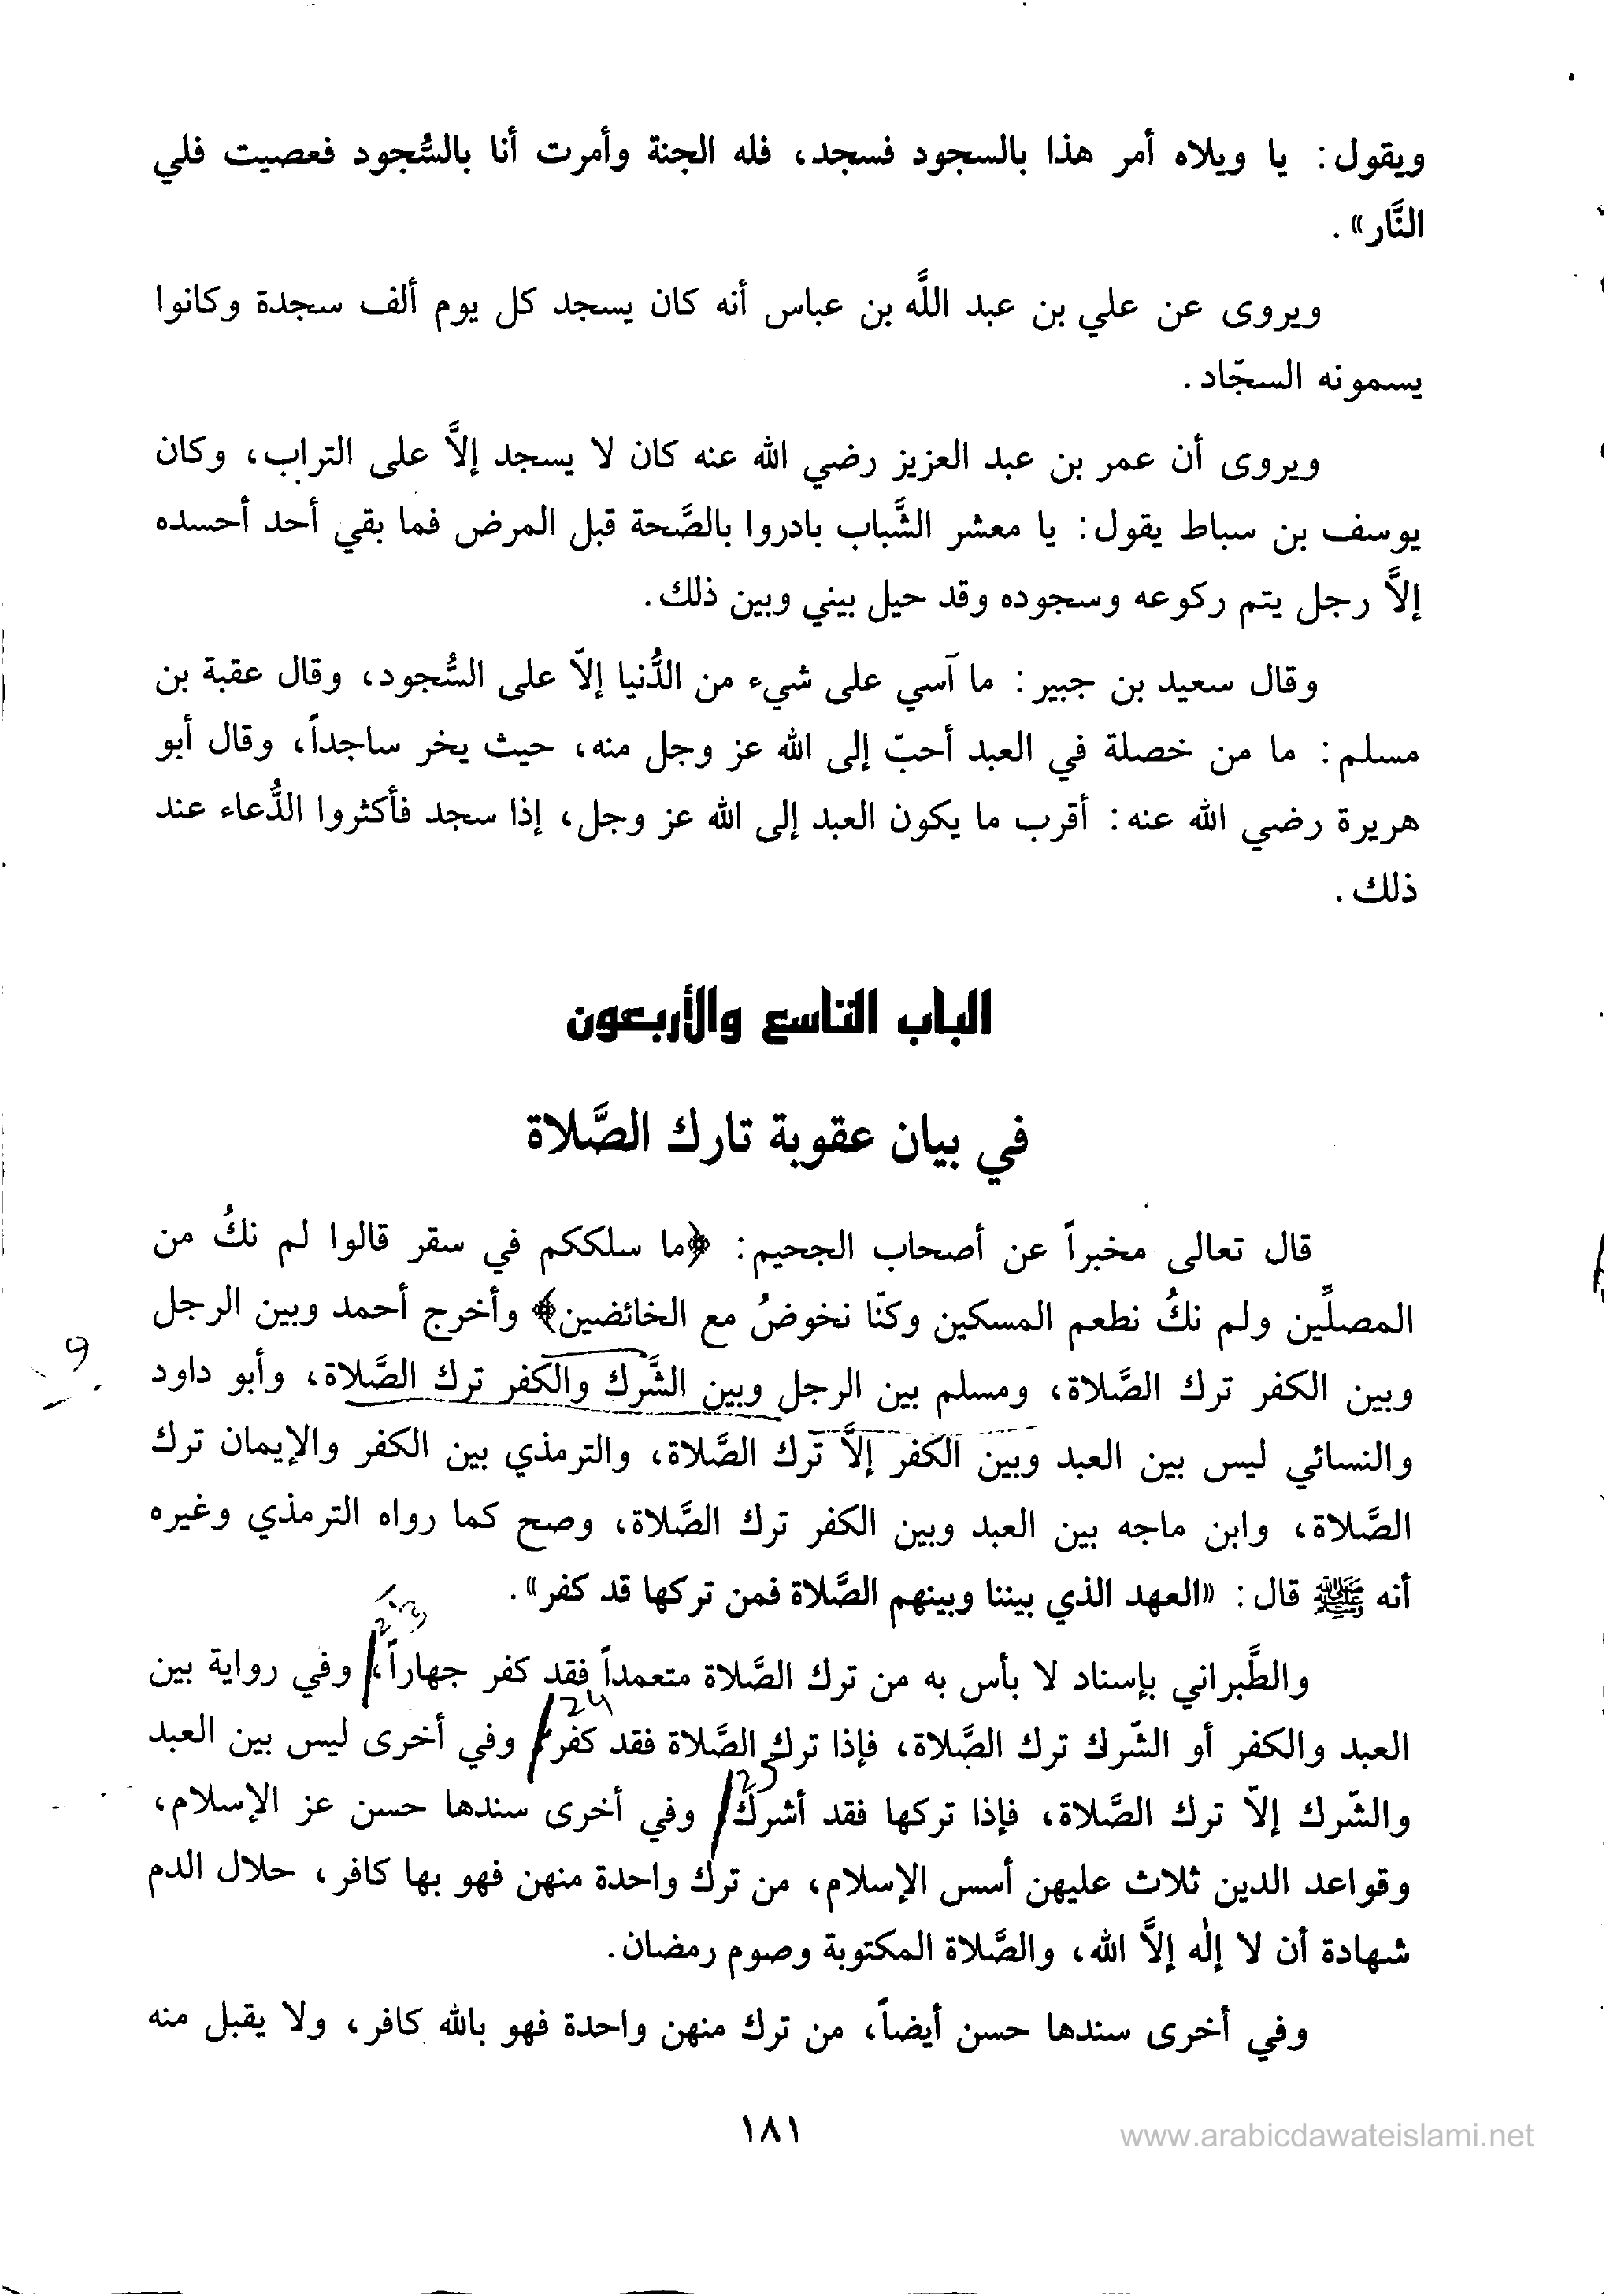 ويقول: يا ويلاه أمر هذا بالسجود فسجد، فله الجنة وأمرت أنا بالسُّجود فعصيت فلي
النَّار».
ويروى عن علي بن عبد اللَّه بن عباس أنه كان يسجد كل يوم ألف سجدة وكانوا
يسمونه السجّاد.
ويروى أن عمر بن عبد العزيز رضي الله عنه كان لا يسجد إلاَّ على التراب، وكان
يوسف بن سباط يقول: يا معشر الشَّباب بادروا بالصَّحة قبل المرض فما بقي أحد أحسده
إلاَّ رجل يتم ركوعه وسجوده وقد حيل بيني وبين ذلك.
وقال سعيد بن جبير: ما آسي على شيء من الدُّنيا إلاّ على السُّجود، وقال عقبة بن
مسلم: ما من خصلة في العبد أحبّ إلى الله عز وجل منه، حيث يخر ساجداً، وقال أبو
هريرة رضي الله عنه: أقرب ما يكون العبد إلى الله عز وجل، إذا سجد فأكثروا الدُّعاء عند
ذلك.
الباب التاسع والأربعون
في بيان عقوبة تارك الصَّلاة
قال تعالى مخبراً عن أصحاب الجحيم: ﴿ما سلككم في سقر قالوا لم نكُ من
المصلِّين ولم نكُ نطعم المسكين وكنّا نخوضُ مع الخائضين﴾ وأخرج أحمد وبين الرجل
وبين الكفر ترك الصَّلاة، ومسلم بين الرجل وبين الشَّرك والكفر ترك الصَّلاة، وأبو داود
9
والنسائي ليس بين العبد وبين الكفر إلاَّ ترك الصَّلاة، والترمذي بين الكفر والإيمان ترك
الصَّلاة، وابن ماجه بين العبد وبين الكفر ترك الصَّلاة، وصح كما رواه الترمذي وغيره
أنه ﷺ قال: «العهد الذي بيننا وبينهم الصَّلاة فمن تركها قد كفر».
والطَّبراني بإسناد لا بأس به من ترك الصَّلاة متعمداً فقد كفر جهاراً، وفي رواية بين
العبد والكفر أو الشّرك ترك الصَّلاة، فإذا ترك الصَّلاة فقد كفر، وفي أخرى ليس بين العبد
والشّرك إلاّ ترك الصَّلاة، فإذا تركها فقد أشرك، وفي أخرى سندها حسن عز الإسلام،
وقواعد الدين ثلاث عليهن أسس الإسلام، من ترك واحدة منهن فهو بها كافر، حلال الدم
شهادة أن لا إلٰه إلاَّ الله، والصَّلاة المكتوبة وصوم رمضان.
وفي أخرى سندها حسن أيضاً، من ترك منهن واحدة فهو بالله كافر، ولا يقبل منه
١٨١
www.arabicdawateislami.net